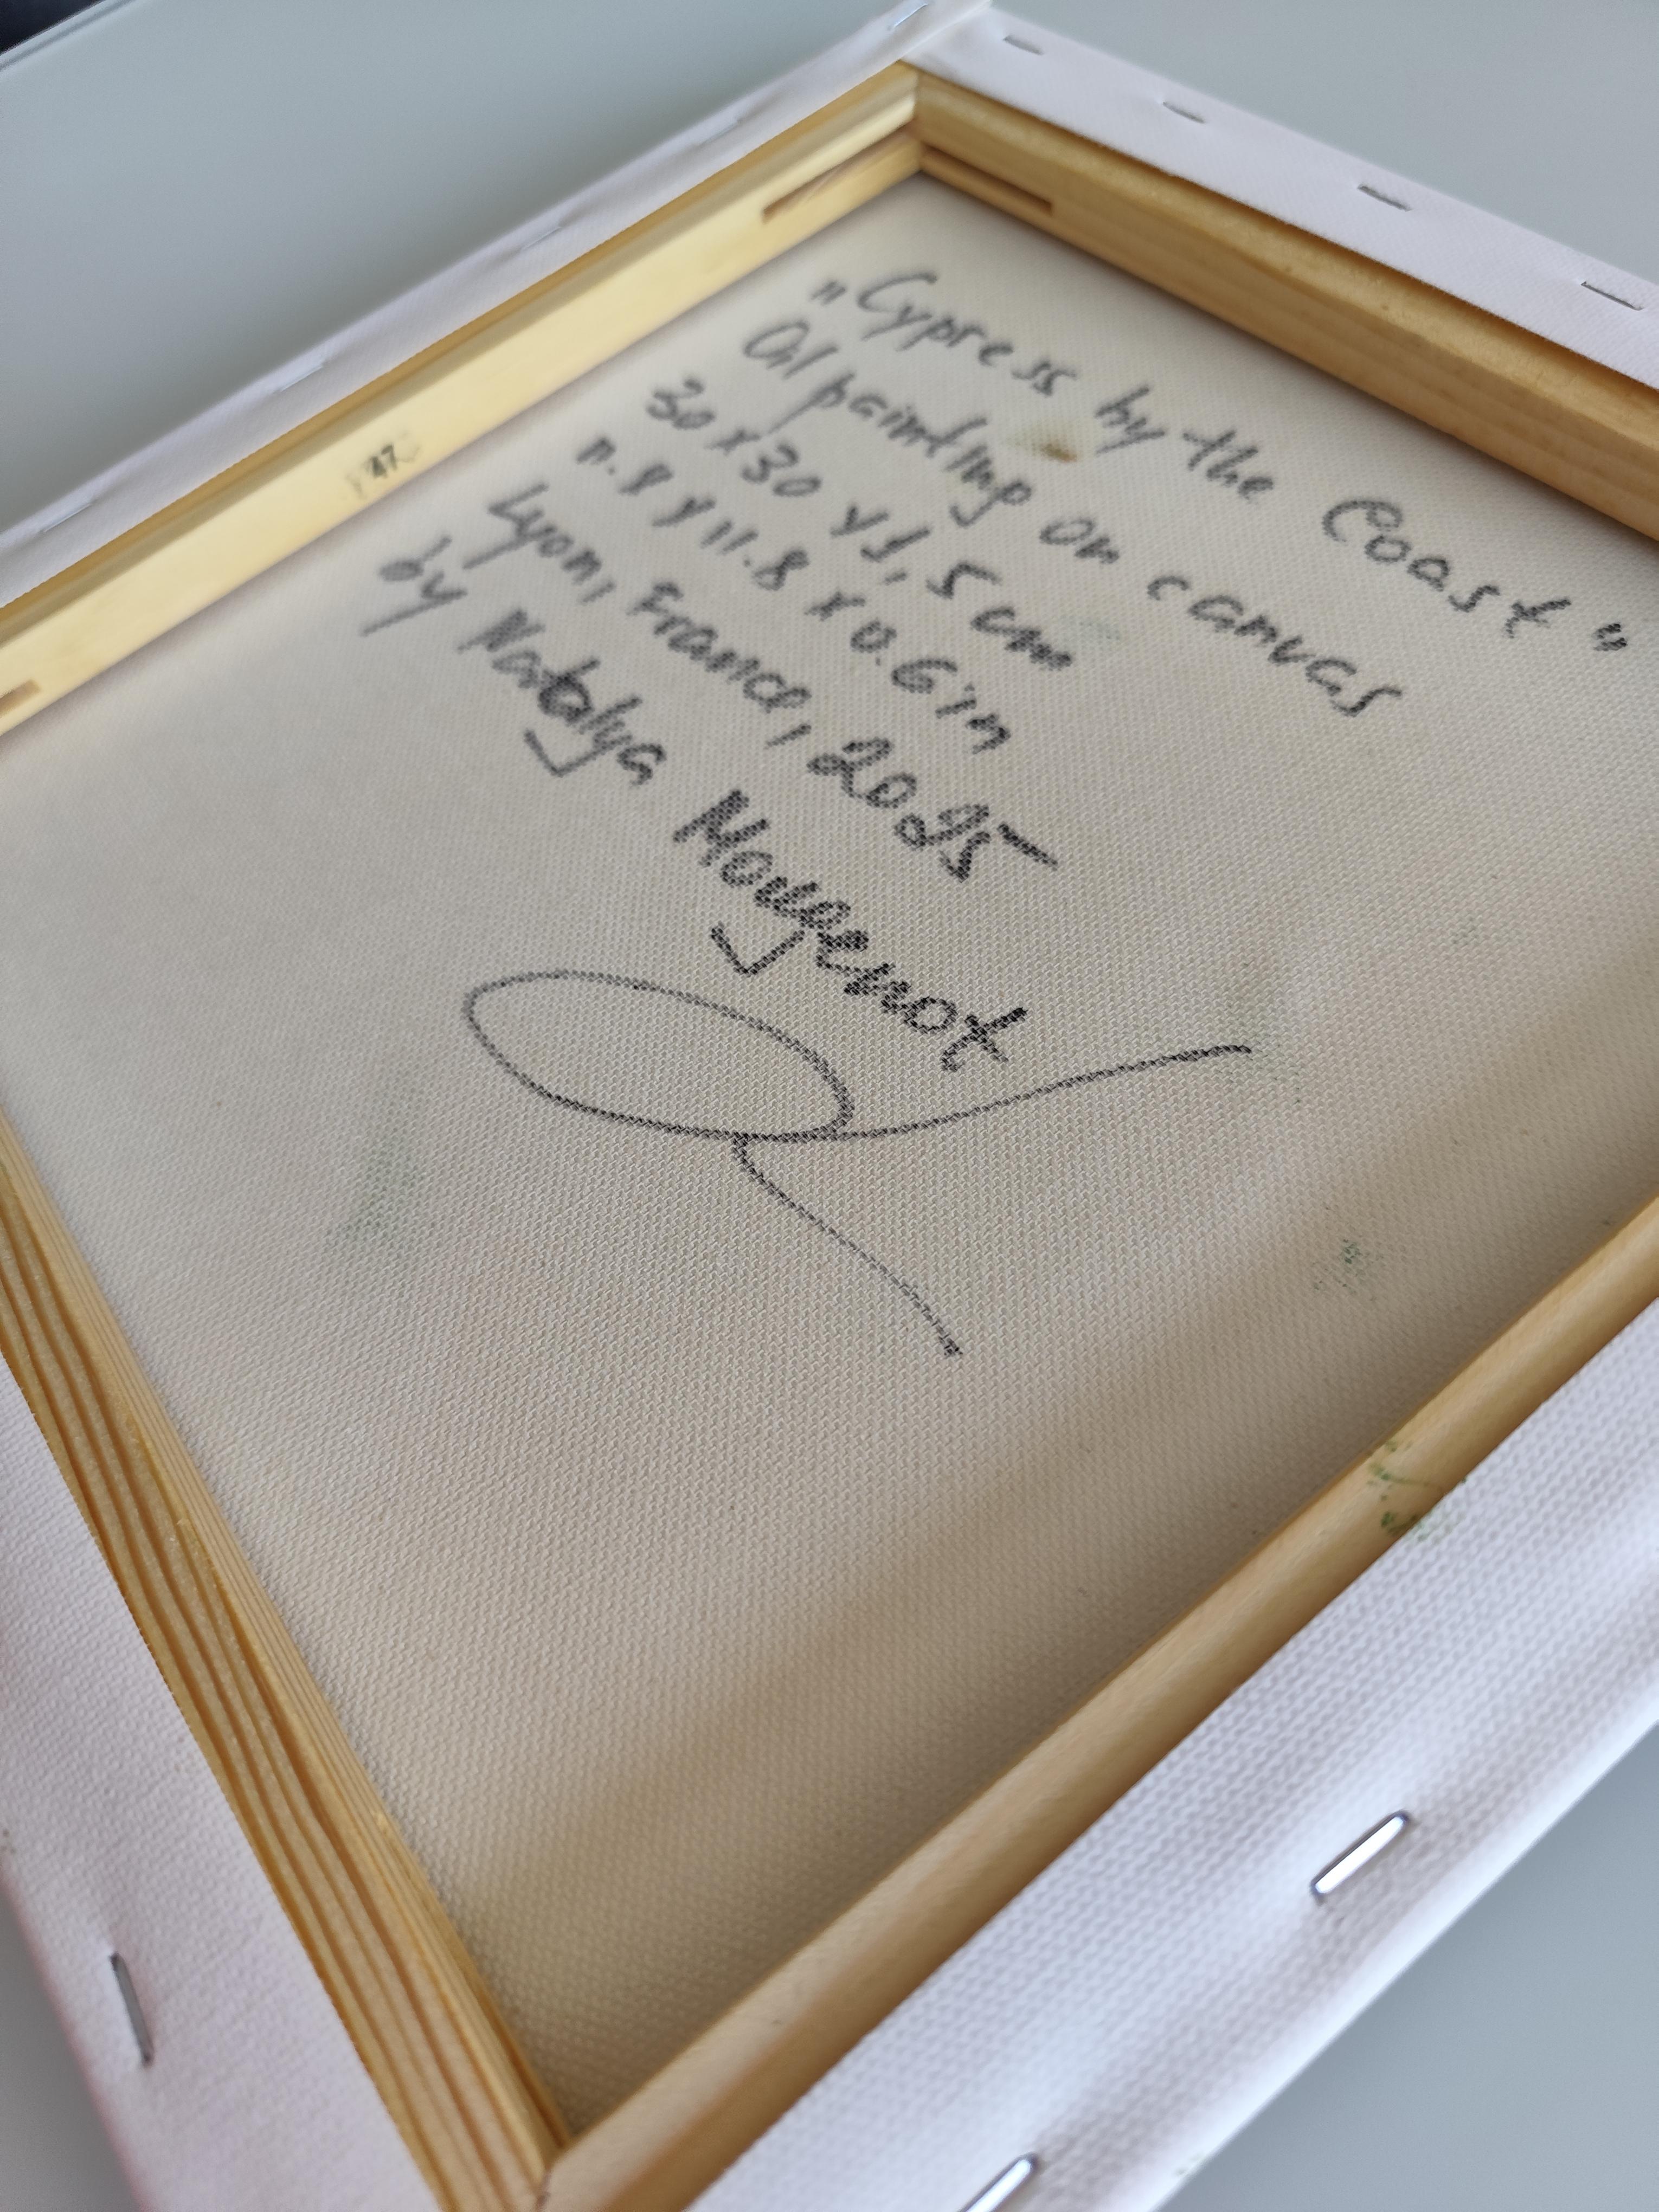 "Cypress by the Coast"
Oil painting on canvas
30 x 30 x 1,5 cm
11.8 x 11.8 x 0.6 in
Lyon, France, 2025
by Natalya Mougenot